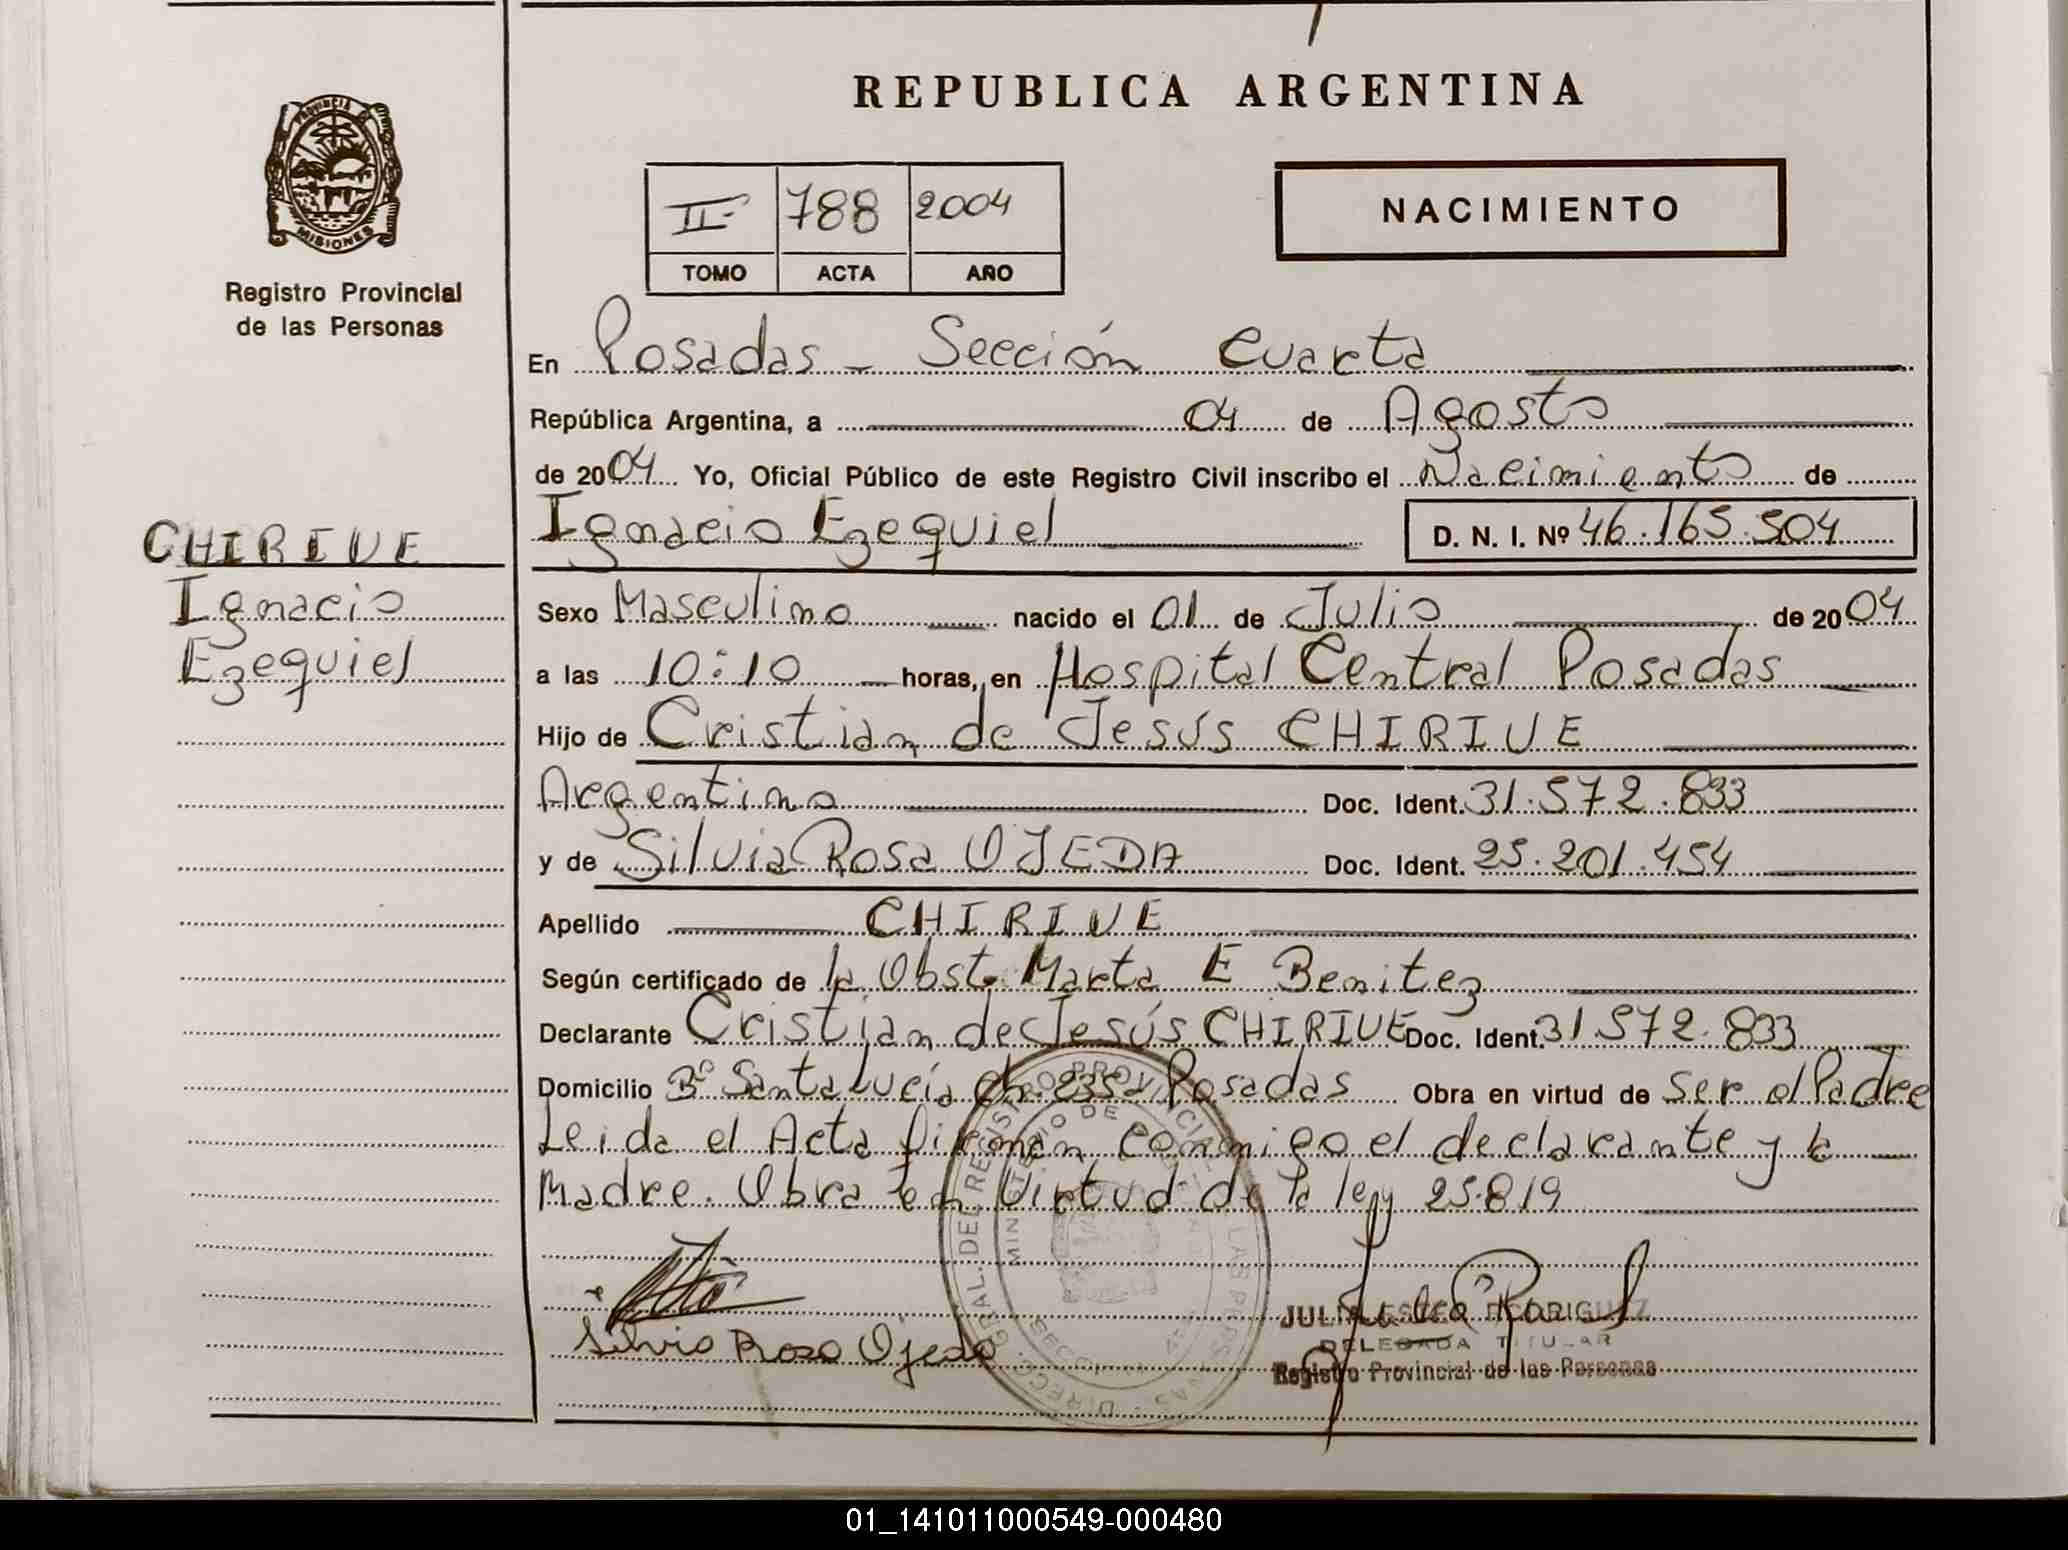 REPUBLICA ARGENTINA
PROVINCIA DE
MISIONES
Registro Provincial
de las Personas
II 788 2004
TOMO ACTA AÑO
NACIMIENTO
En Posadas - Sección Cuarta
República Argentina, a 04 de Agosto
de 2004 Yo, Oficial Público de este Registro Civil inscribo el Nacimiento de
Ignacio Ezequiel D. N. I. Nº 46.165.504
CHIRIVE
Ignacio
Ezequiel
Sexo Masculino nacido el 01 de Julio de 2004
a las 10:10 horas, en Hospital Central Posadas
Hijo de Cristian de Jesús CHIRIVE
Argentino Doc. Ident. 31.572.833
y de Silvia Rosa OJEDA Doc. Ident. 25.201.454
Apellido CHIRIVE
Según certificado de la Obst. Marta E Benitez
Declarante Cristian de Jesús CHIRIVE Doc. Ident. 31.572.833
Domicilio Bº Santa Lucía Ch 235 Posadas Obra en virtud de ser el Padre
Leida el Acta firman conmigo el declarante y la
Madre. Obra en Virtud de la ley 25.819
Silvia Rosa Ojeda
JULIA ESTER RODRIGUEZ
DELEGADA TITULAR
Registro Provincial de las Personas
01_141011000549-000480